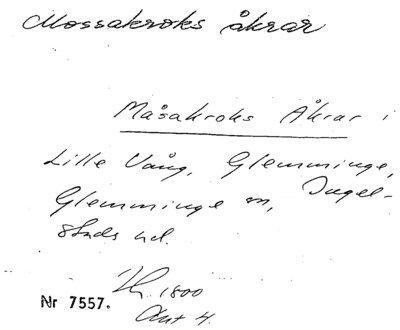 Mossakroks åkrar
Måsakroks Åkrar i
Lille Vång, Glemminge,
Glemminge sn, Ingel-
stads hd.
1800
Nr 7557.
Akt 4.